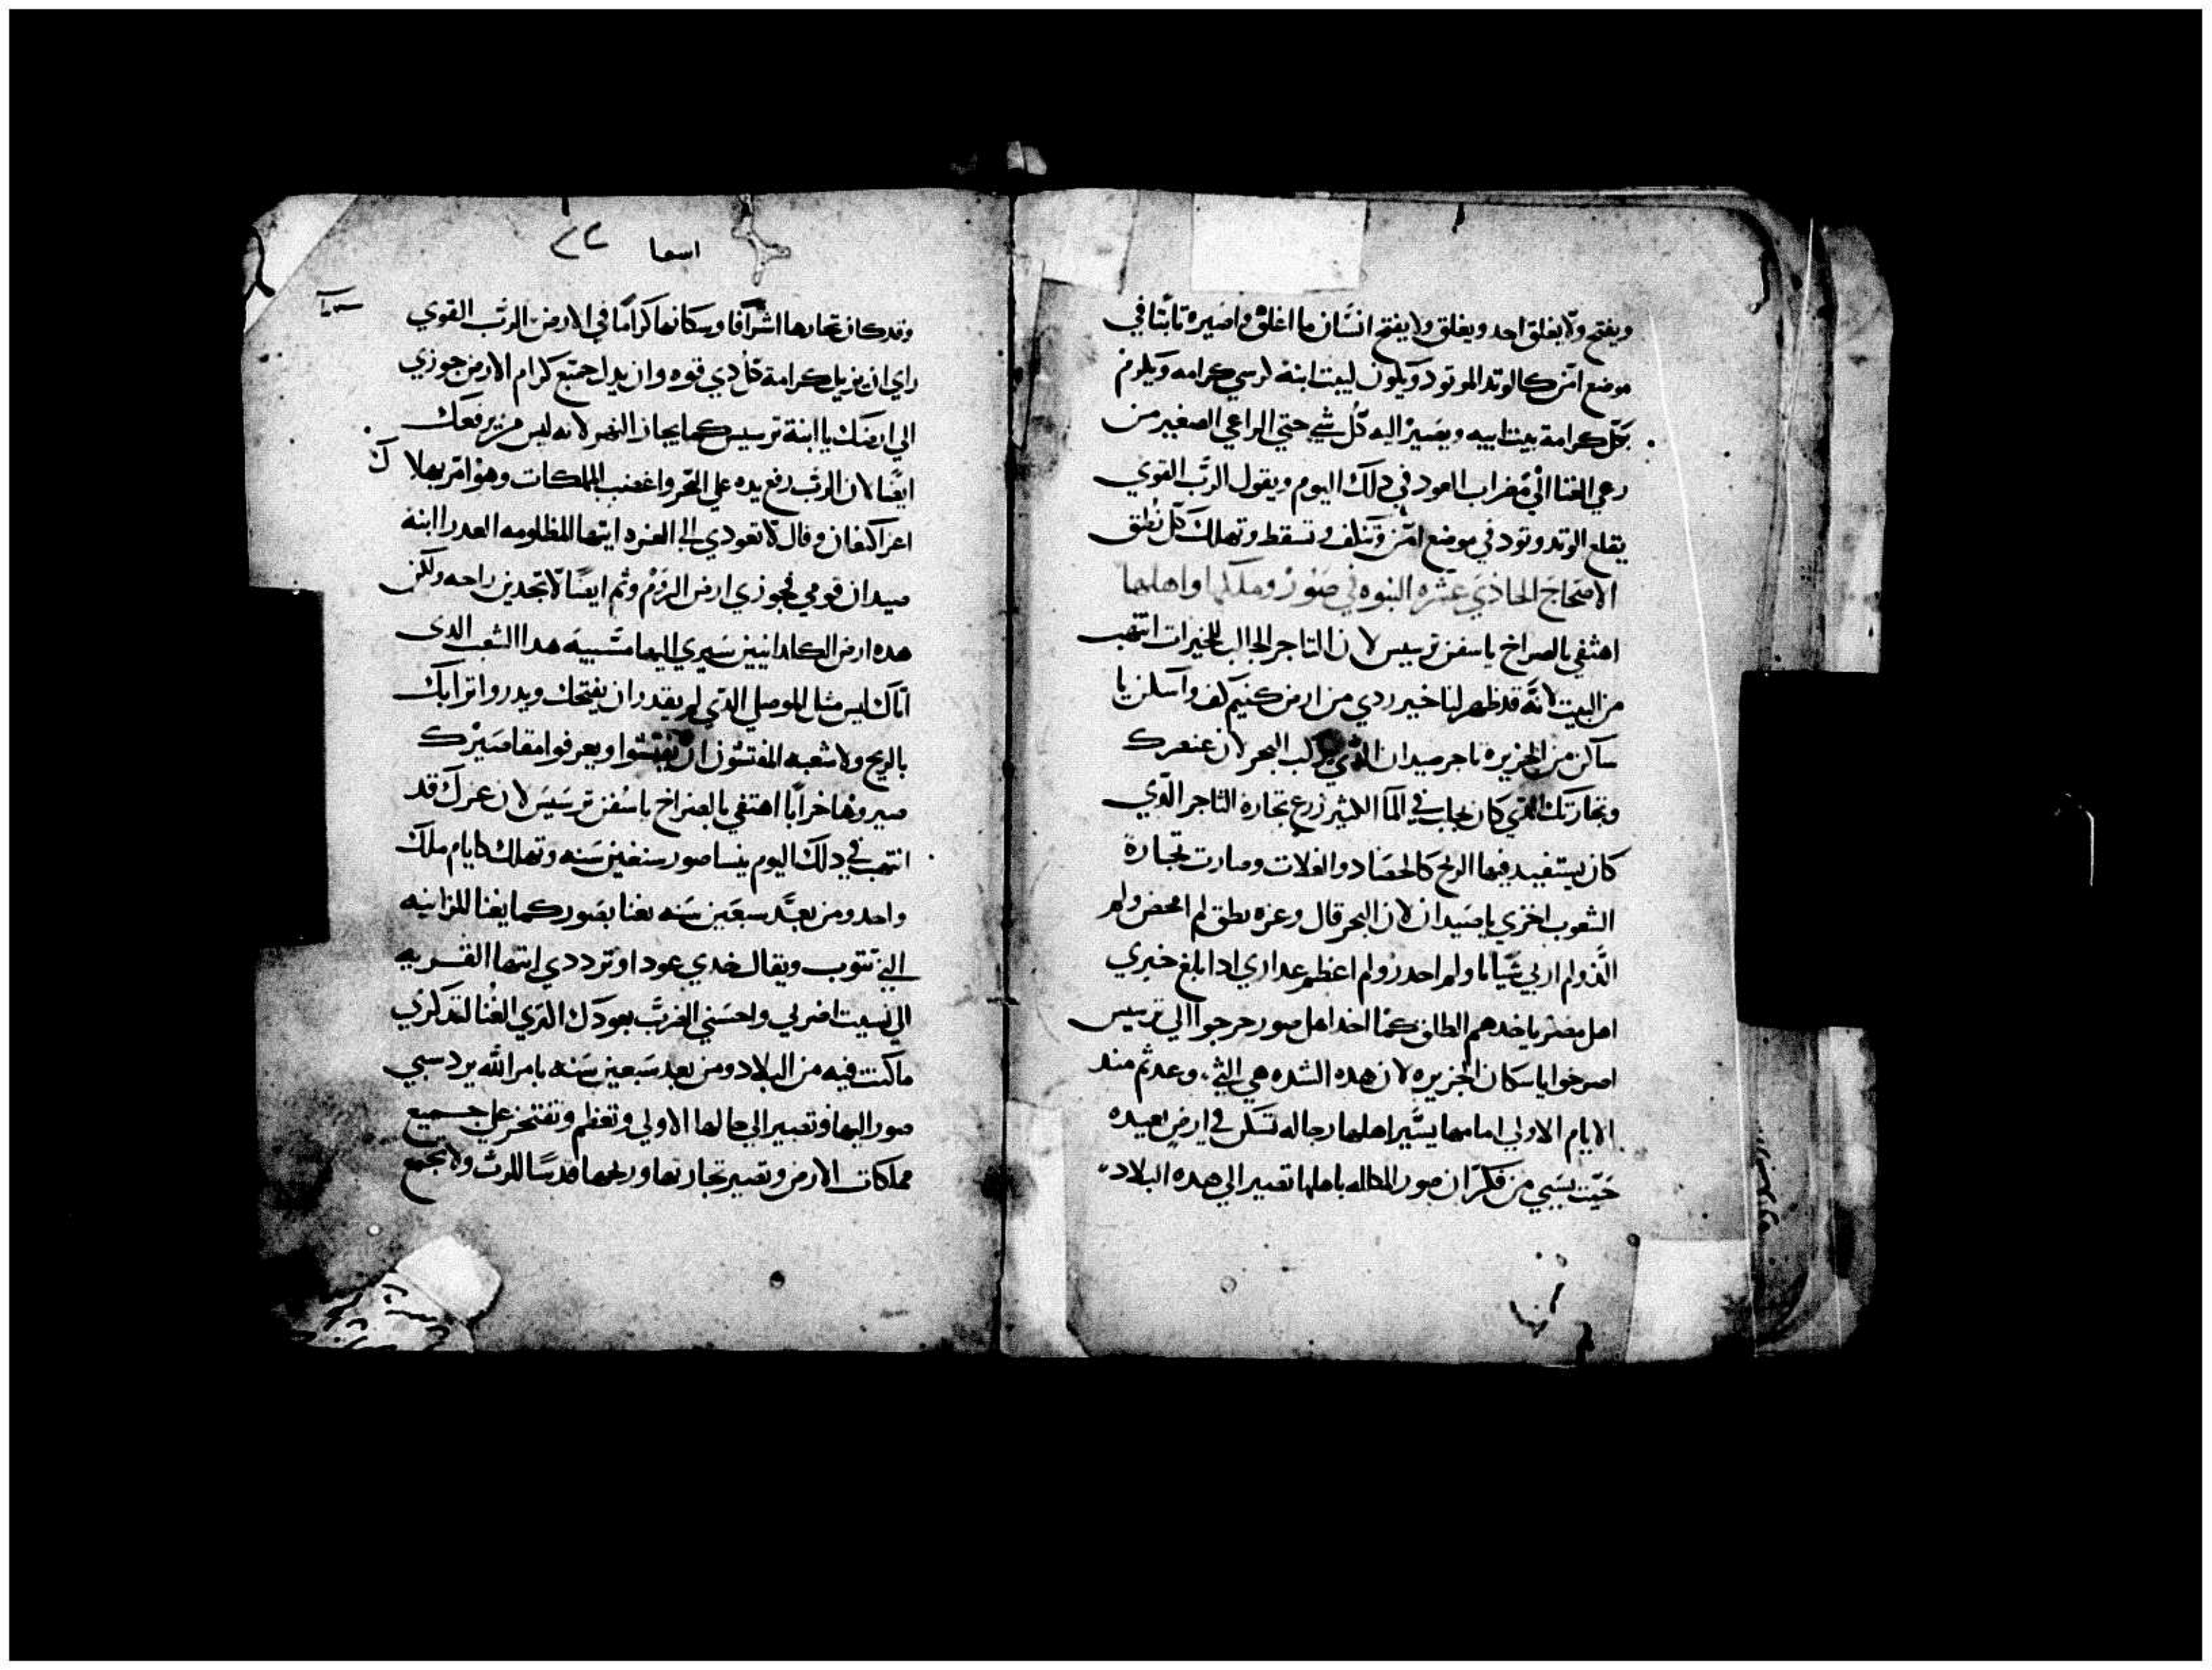 ويفتح ولا يغلق احد ويغلق ولا يفتح انسان ما اغلق واصيره تابتا في
موضع امن كالوتد الموتود ويكون لبيت ابنه كرسي كرامه ويلزم
بكل كرامة بيت ابيه ويصير اليه كل شي حتي الراعي الصغير من
رعي الغنا الي مضراب العود في دلك اليوم ويقول الرب القوي
يقلع الوتد وتود في موضع امن وتتلف وتسقط وتهلك كل نطق
الاصحاح الحاذي عشره النبوه في صور وملكها واهلها
اهتفي بالصراخ ياسفن ترسيس لان التاجر الجالب للخيرات انتهب
من البيت لانه قد ظهر لنا خبر ردي من ارض كتيم كف واسكن يا
ساكن من الجزيره تاجر صيدان الذي يركب البحر لان عنصرك
وتجارتك التي كان يجاب في الما الكثير زرع تجارة التاجر الذي
كان يستفيد فيها الربح كالحصاد والغلات وصارت تجارة
الشعوب اخزي ياصيدان لان البحر قال وعزه يطق لم امخض ولم
الد ولم اربي شبابا ولم احدر ولم اعظم عداري ادا بلغ خبري
اهل مصر ياخدهم الطلق كما اخد اهل صور خرجوا الي ترسيس
اصرخوا ياسكان الجزيره لان هده الشده هي التي وعدتم مند
الايام الاولي امامها يسير اهلها رجاله تسكن في ارض بعيده
حيت يسبي من فكر ان صور المكلله باهلها تصير الي هده البلاد
اسعيا
وقد كان تجارها اشرافا وسكانها كراما في الارض الرب القوي
راي ان يزيل كرامة كل دي قوه وان يدل جميع كرام الارض جوزي
الي ارضك يا ابنة ترسيس كما يجاز النهر لانه ليس من يرفعك
ايضا لان الرب رفع يده علي البحر واغضب المملكات وهو امر بهلاك
اعز اكنعان وقال لا تعودي الي العزه ايتها المظلومه العدرا ابنة
صيدان قومي فجوزي ارض الروم وثم ايضا لا تجدين راحه ولكن
هده ارض الكلدانيين سيري اليها مسبيه هدا الشعب الدي
اتاك ليس مثل الموصلي الدي لم يقدر ان يفتحك ويدروا ترابك
بالريح ولا شعبه المفتشون ان يفتشوا ويعرفوا مقاصيرك
صيروها خرابا اهتفي بالصراخ ياسفن ترسيس لان عزك قد
انتهب في دلك اليوم ينسا صور سبعين سنه وتهلك كايام ملك
واحد ومن بعد سبعين سنه يغنا بصور كما يغنا للزانيه
التي تتوب ويقال خدي عودا وترددي ايتها القريه
الي نسيت اضربي واحسني الضرب بعودك الدي الغنا لتدكري
ما كنت فيه من البلاد ومن بعد سبعين سنه بامر الله يرد سبي
صور اليها وتصير الي حالها الاولي وتعظم وتفتخر علي جميع
مملكات الارض وتصير تجارتها وربحها قدسا للرب ولا تجمع